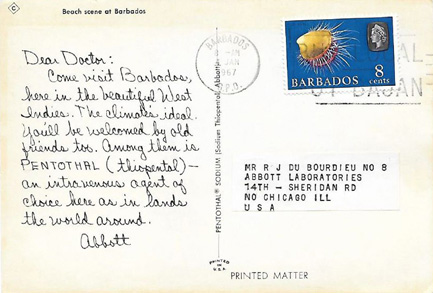 C
Beach scene at Barbados
Dear Doctor:
Come visit Barbados,
here in the beautiful West
Indies. The climate's ideal.
You'll be welcomed by old
friends too. Among them is
PENTOTHAL (thiopental) —
an intravenous agent of
choice here as in lands
the world around.
Abbott
PENTOTHAL® SODIUM (Sodium Thiopental, Abbott)
PRINTED
IN
U.S.A.
BARBADOS
JAN
1967
G.P.O.
BARBADOS 8
cents
BAJAN
MR R J DU BOURDIEU NO 8
ABBOTT LABORATORIES
14TH - SHERIDAN RD
NO CHICAGO ILL
U S A
PRINTED MATTER